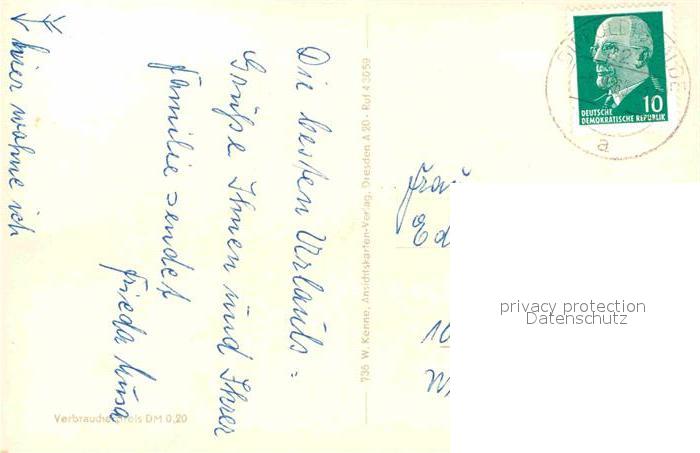 Die besten Urlaubs =
Grüße Ihnen und Ihrer
Familie sendet
Frieda
hier wohne ich
Verbraucherpreis DM 0,20
736 W. Kenne, Ansichtskarten-Verlag, Dresden A 20 · Ruf 4 3059
DEUTSCHE
DEMOKRATISCHE REPUBLIK
10
a
Frau
Ed
10
W
privacy protection
Datenschutz